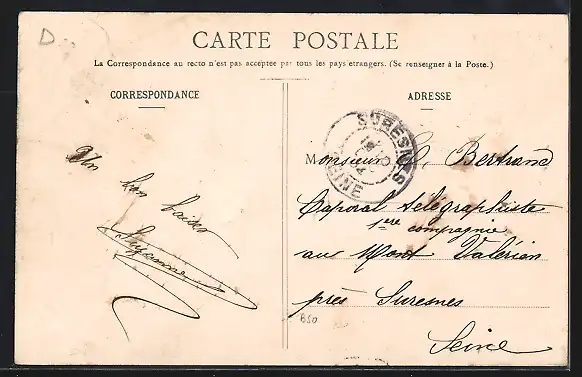 D
CARTE POSTALE
La Correspondance au recto n'est pas acceptée par tous les pays étrangers. (Se renseigner à la Poste.)
CORRESPONDANCE
Un
bon baiser
Suzanne
ADRESSE
SURESNES
SEINE
Monsieur Bertrand
Caporal télégraphiste
1ère compagnie
au Mont Valérien
près Suresnes
850
Seine